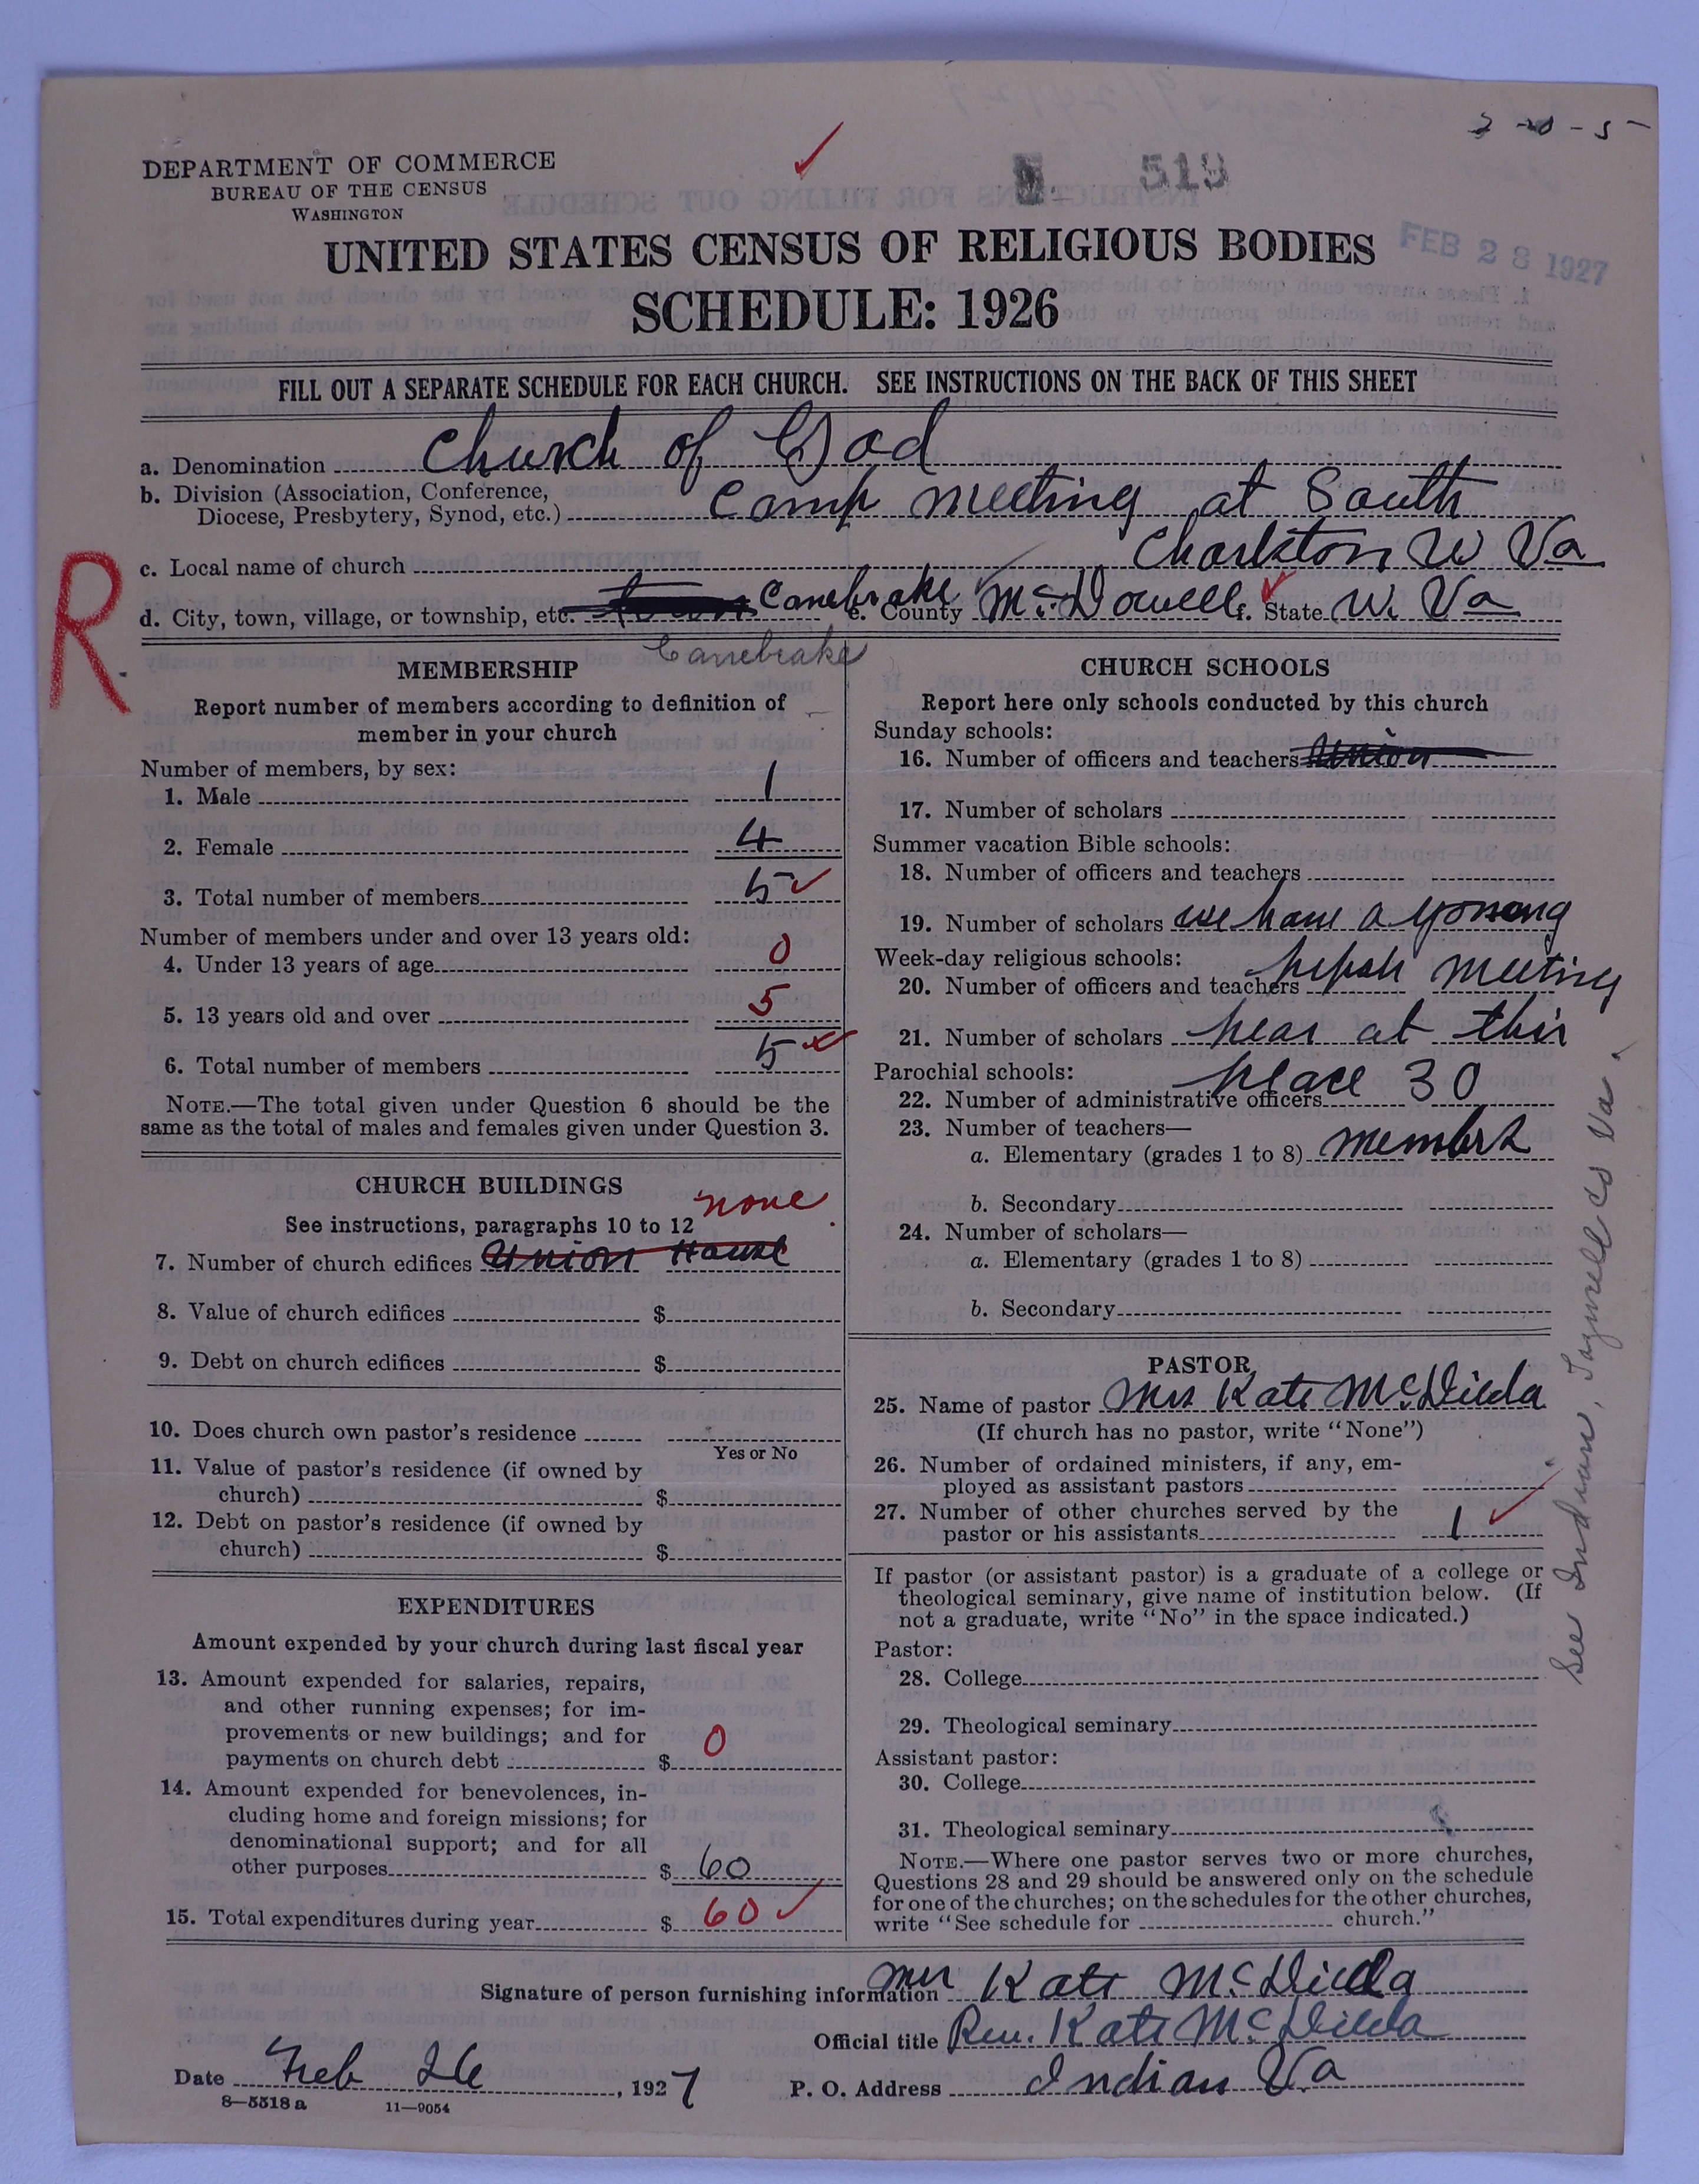 2-20-5-
519
DEPARTMENT OF COMMERCE
BUREAU OF THE CENSUS
WASHINGTON
FEB 28 1927
UNITED STATES CENSUS OF RELIGIOUS BODIES
SCHEDULE: 1926
FILL OUT A SEPARATE SCHEDULE FOR EACH CHURCH. SEE INSTRUCTIONS ON THE BACK OF THIS SHEET
a. Denomination Church of God
b. Division (Association, Conference,
Diocese, Presbytery, Synod, etc.) Camp meeting at South
c. Local name of church Charlston W Va
R
d. City, town, village, or township, etc. Canebrake e. County McDowell f. State W. Va
Canebrake
MEMBERSHIP
Report number of members according to definition of
member in your church
Number of members, by sex:
1. Male 1
2. Female 4
3. Total number of members 5
Number of members under and over 13 years old:
4. Under 13 years of age 0
5. 13 years old and over 5
6. Total number of members 5
NOTE.—The total given under Question 6 should be the
same as the total of males and females given under Question 3.
CHURCH BUILDINGS
none
See instructions, paragraphs 10 to 12
7. Number of church edifices Union House
8. Value of church edifices $
9. Debt on church edifices $
10. Does church own pastor's residence
Yes or No
11. Value of pastor's residence (if owned by
church) $
12. Debt on pastor's residence (if owned by
church) $
EXPENDITURES
Amount expended by your church during last fiscal year
13. Amount expended for salaries, repairs,
and other running expenses; for im-
provements or new buildings; and for
payments on church debt $ 0
14. Amount expended for benevolences, in-
cluding home and foreign missions; for
denominational support; and for all
other purposes $ 60
15. Total expenditures during year $ 60
CHURCH SCHOOLS
Report here only schools conducted by this church
Sunday schools:
16. Number of officers and teachers Union
17. Number of scholars
Summer vacation Bible schools:
18. Number of officers and teachers
19. Number of scholars we have a yonong
Week-day religious schools:
20. Number of officers and teachers meeting
21. Number of scholars hear at this
Parochial schools:
22. Number of administrative officers place 30
23. Number of teachers—
a. Elementary (grades 1 to 8) members
b. Secondary
24. Number of scholars—
a. Elementary (grades 1 to 8)
b. Secondary
PASTOR
25. Name of pastor Mrs Kate McDilda
(If church has no pastor, write "None")
26. Number of ordained ministers, if any, em-
ployed as assistant pastors
27. Number of other churches served by the
pastor or his assistants 1
If pastor (or assistant pastor) is a graduate of a college or
theological seminary, give name of institution below. (If
not a graduate, write "No" in the space indicated.)
Pastor:
28. College
29. Theological seminary
Assistant pastor:
30. College
31. Theological seminary
NOTE.—Where one pastor serves two or more churches,
Questions 28 and 29 should be answered only on the schedule
for one of the churches; on the schedules for the other churches,
write "See schedule for church."
See Indian, Tazwell Co Va.
Signature of person furnishing information Mrs Kate McDilda
Official title Rev. Kate McDilda
Date Feb 26, 1927 P. O. Address Indian Va
8—5518 a 11—9054